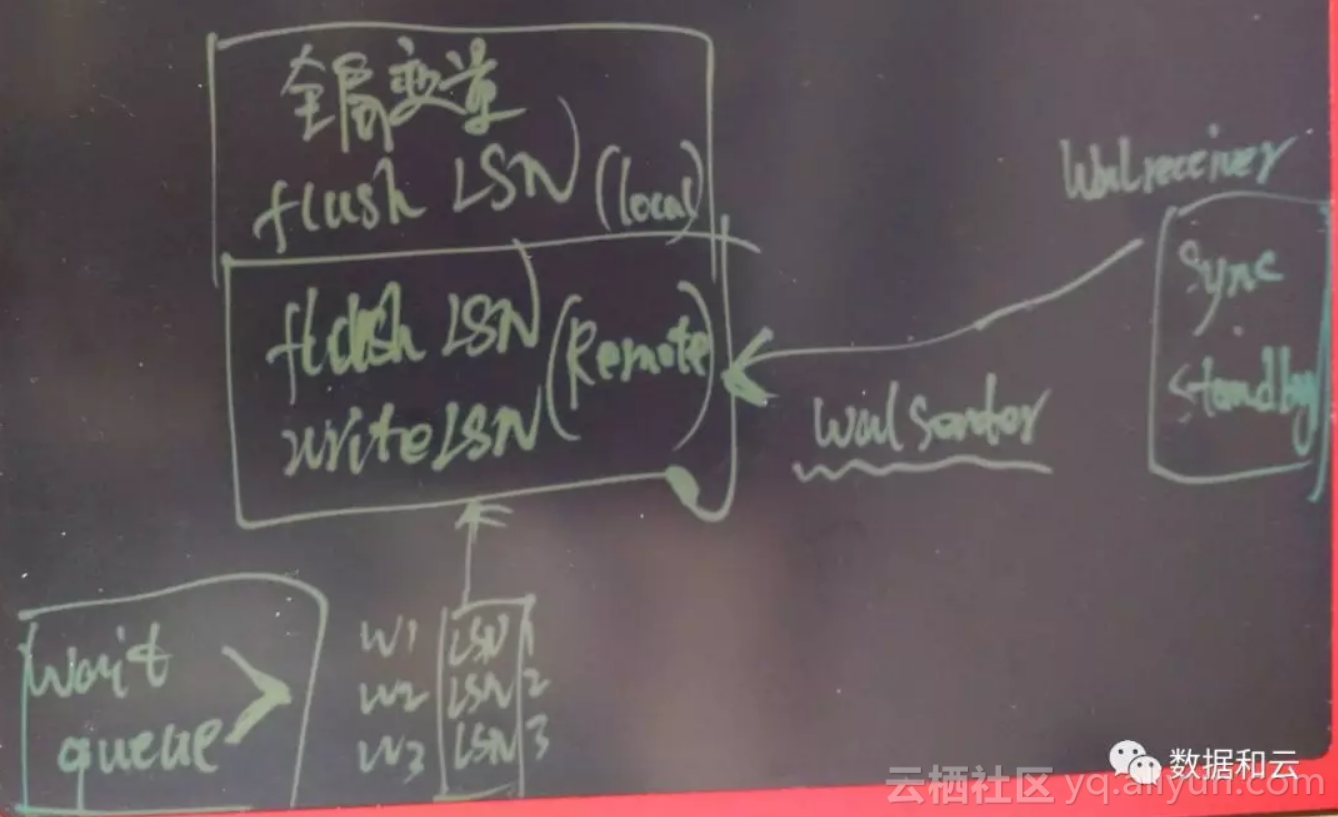 全局变量
flush LSN (local)
flush LSN
write LSN
(Remote)
Walreceiver
Sync
standby
wal sender
wait
queue
W1 LSN 1
W2 LSN 2
W3 LSN 3
数据和云
云栖社区 yq.aliyun.com